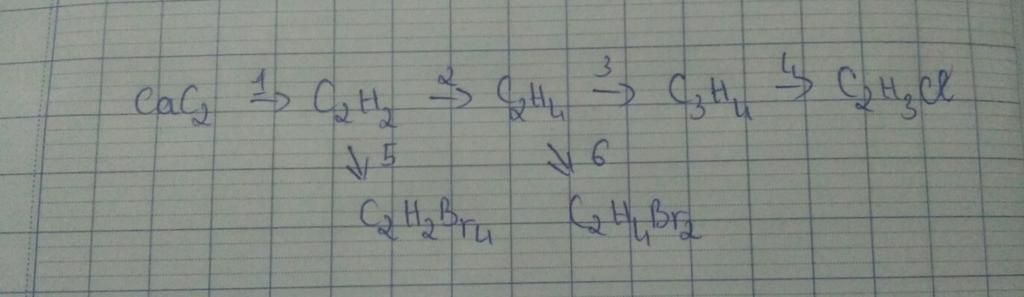 CaC2 1→ C2H2 2→ C2H4 3→ C3H4 4→ C2H3Cl
↓5 ↓6
C2H2Br4 C2H4Br2